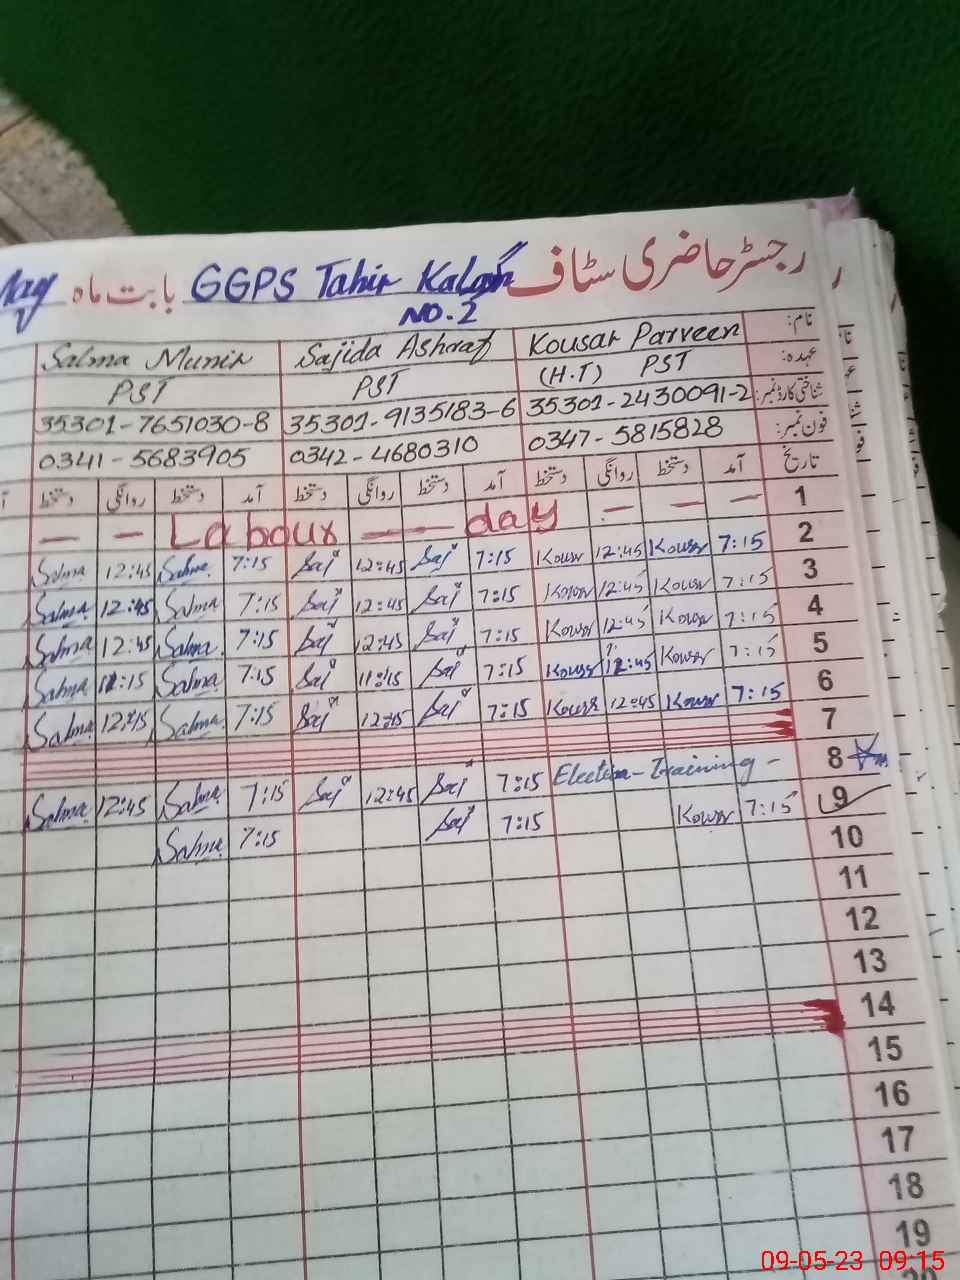 رجسٹر حاضری سٹاف GGPS Tahir Kalan بابت ماہ May
NO.2
نام: Kousar Parveen Sajida Ashraf Salma Munir
عہدہ: (H.T) PST PST PST
شناختی کارڈ نمبر: 35301-2430091-2 35301-9135183-6 35301-7651030-8
فون نمبر: 0347-5815828 0342-4680310 0341-5683905
تاریخ آمد دستخط روانگی دستخط آمد دستخط روانگی دستخط آمد دستخط روانگی دستخط
1 — — — Labour — — day — —
2 7:15 Kousr 12:45 Kousr 7:15 Saj 12:45 Saj 7:15 Salma 12:45 Salma
3 7:15 Kousr 12:45 Kousr 7:15 Saj 12:45 Saj 7:15 Salma 12:45 Salma
4 7:15 Kousr 12:45 Kousr 7:15 Saj 12:45 Saj 7:15 Salma 12:45 Salma
5 7:15 Kousr 12:45 Kousr 7:15 Saj 11:15 Saj 7:15 Salma 11:15 Salma
6 7:15 Kousr 12:45 Kousr 7:15 Saj 12:15 Saj 7:15 Salma 12:15 Salma
7
8 Election - Training - 7:15 Saj 12:45 Saj 7:15 Salma 12:45 Salma
9 7:15 Kousr 7:15 Saj 7:15 Salma
10
11
12
13
14
15
16
17
18
19
09-05-23 09:15